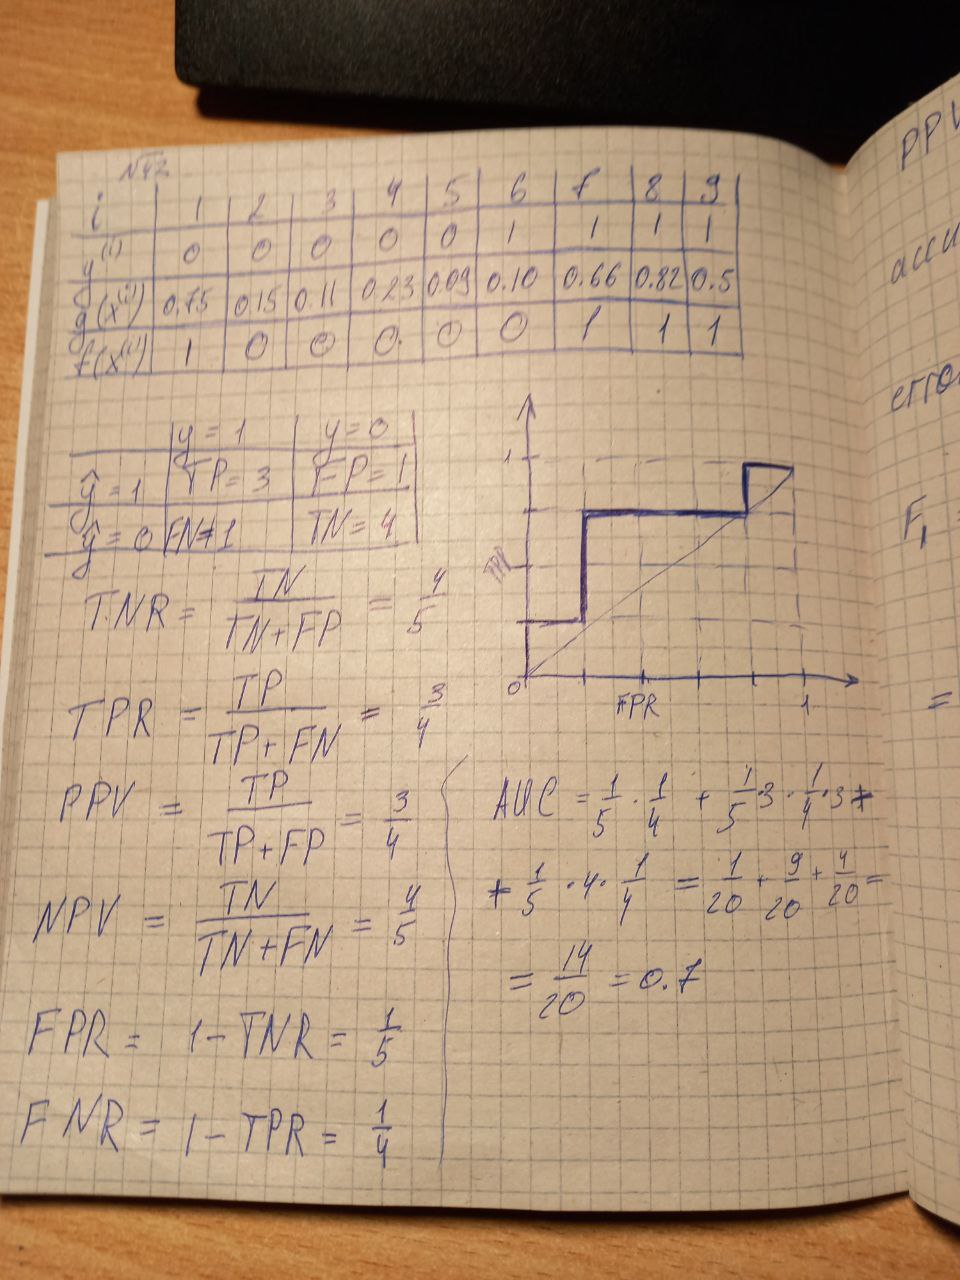 №42
i 1 2 3 4 5 6 7 8 9
y⁽ⁱ⁾ 0 0 0 0 0 1 1 1 1
g(x⁽ⁱ⁾) 0.75 0.15 0.11 0.23 0.09 0.10 0.66 0.82 0.5
f(x⁽ⁱ⁾) 1 0 0 0 0 0 1 1 1
y = 1 y = 0
ŷ = 1 TP = 3 FP = 1
ŷ = 0 FN = 1 TN = 4
TNR = TN / (TN + FP) = 4/5
TPR = TP / (TP + FN) = 3/4
PPV = TP / (TP + FP) = 3/4
NPV = TN / (TN + FN) = 4/5
FPR = 1 - TNR = 1/5
FNR = 1 - TPR = 1/4
1
TPR
0 FPR 1
AUC = 1/5 · 1/4 + 1/5 · 3 · 1/4 · 3 +
+ 1/5 · 4 · 1/4 = 1/20 + 9/20 + 4/20 =
= 14/20 = 0.7
PPV
F₁ =
=